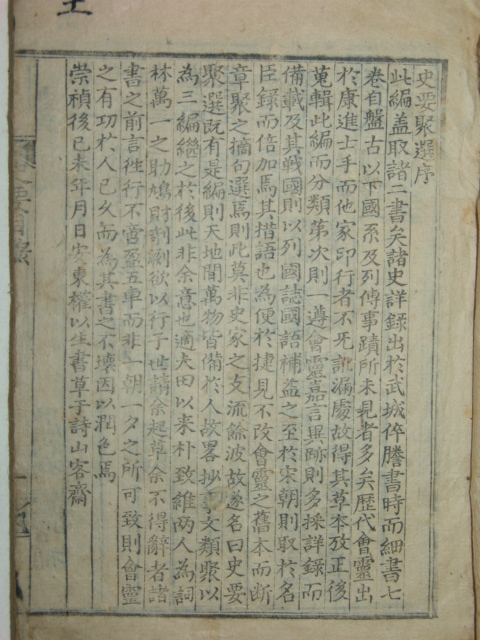 史要聚選序
此編盖取諸二書矣諸史詳錄出於武城倅謄書時而細書七
卷自盤古以下國系及列傳事蹟所未見者多矣歷代會靈出
於康進士手而他家印行者不死訛漏處故得其草本攷正後
蒐輯此編而分類第次則一遵會靈嘉言異跡則多採詳錄而
備載及其戰國則以列國誌國語補益之至於宋朝則取於名
臣錄而倍加焉其措語也為便於捷見不改會靈之舊本而斷
章聚之摘句選焉則此莫非史家之支流餘波故遂名曰史要
聚選既有是編則天地間萬物皆備於人故畧抄事文類聚以
為三編繼之於後此非余意也適夫田以采朴致維兩人為詞
林萬一之助鳩財剞劂欲以行于世請余起草余不得辭者諸
書之前言徃行不啻盈五車而非一朝一夕之所可致則會靈
之有功於人已久而為其書之不壞因以潤色焉
崇禎後己未年月日安東權以生書草于詩山客齋